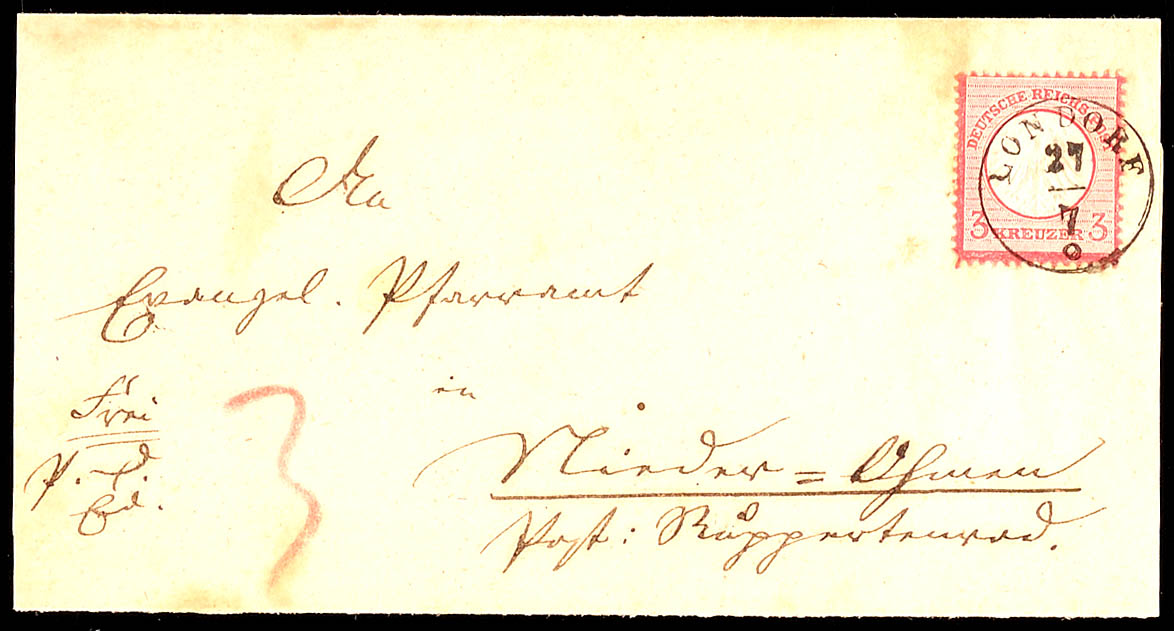 DEUTSCHE REICHS-POST
3 KREUZER 3
LONDORF
27
7
An
Evangel. Pfarramt
in
Nieder=Ohmen
Post: Ruppertenrod.
Frei
3